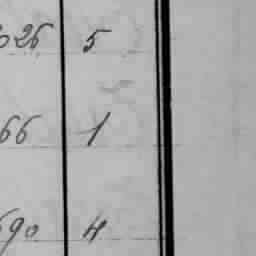 026 5
66 1
690 4